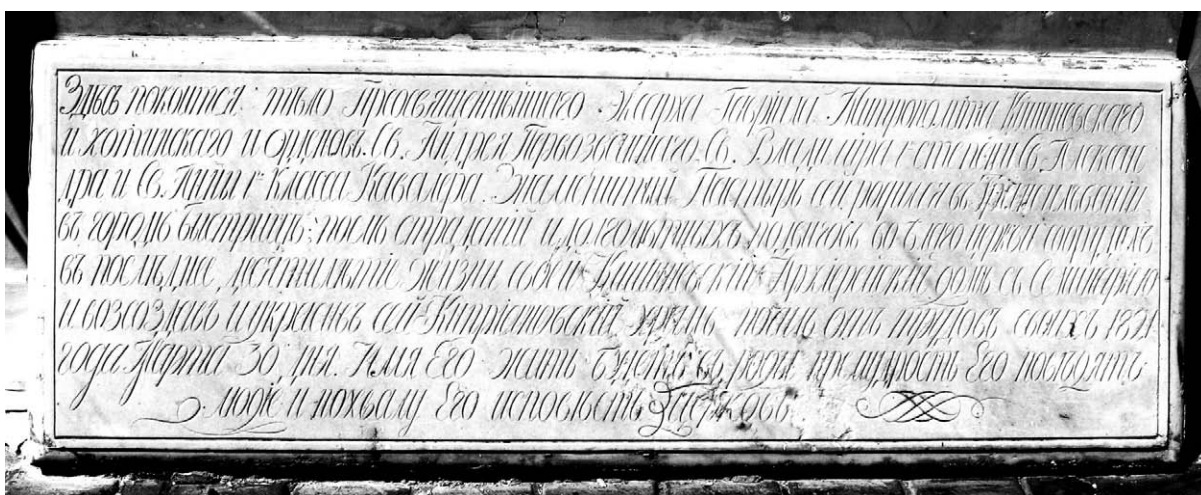 Здѣсь покоится тѣло Преосвященнѣйшаго Эксарха Гавріила Митрополита Кишиневскаго
и хотинскаго и орденовъ Св. Андрея Первозваннаго, Св. Владиміра 1 степени Св. Алексан
дра и Св. Анны 1 класса Кавалера. Знаменитый Пастырь сей родился в Трансильваніи
въ городѣ Быстрицѣ; послѣ страданій и долголѣтныхъ подвиговъ во благо церкви
въ послѣднее десятилѣтіе жизни своей Кишиневскій Архіерейскій домъ съ Семинаріею
и возсоздавъ и украсивъ сей Капріановскій храмъ почилъ отъ трудовъ своихъ 1821
года Марта 30 дня. Имя Его жить будетъ въ роды премудрость Его повѣдятъ
людіе и похвалу Его исповѣсть Церковь.